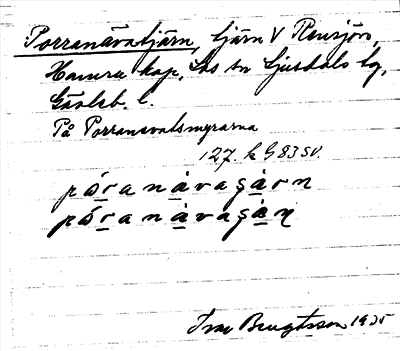 Porranävatjärn, tjärn V Rensjön,
Hamra kap, Los sn Ljusdals tg,
Gävleb. l.
På Porranavatsmyrarna
127. k G 83 SV.
pɑ́ranàvagàrn
pɑ́ranàvagàɳ
Ivar Bengtsson 1935